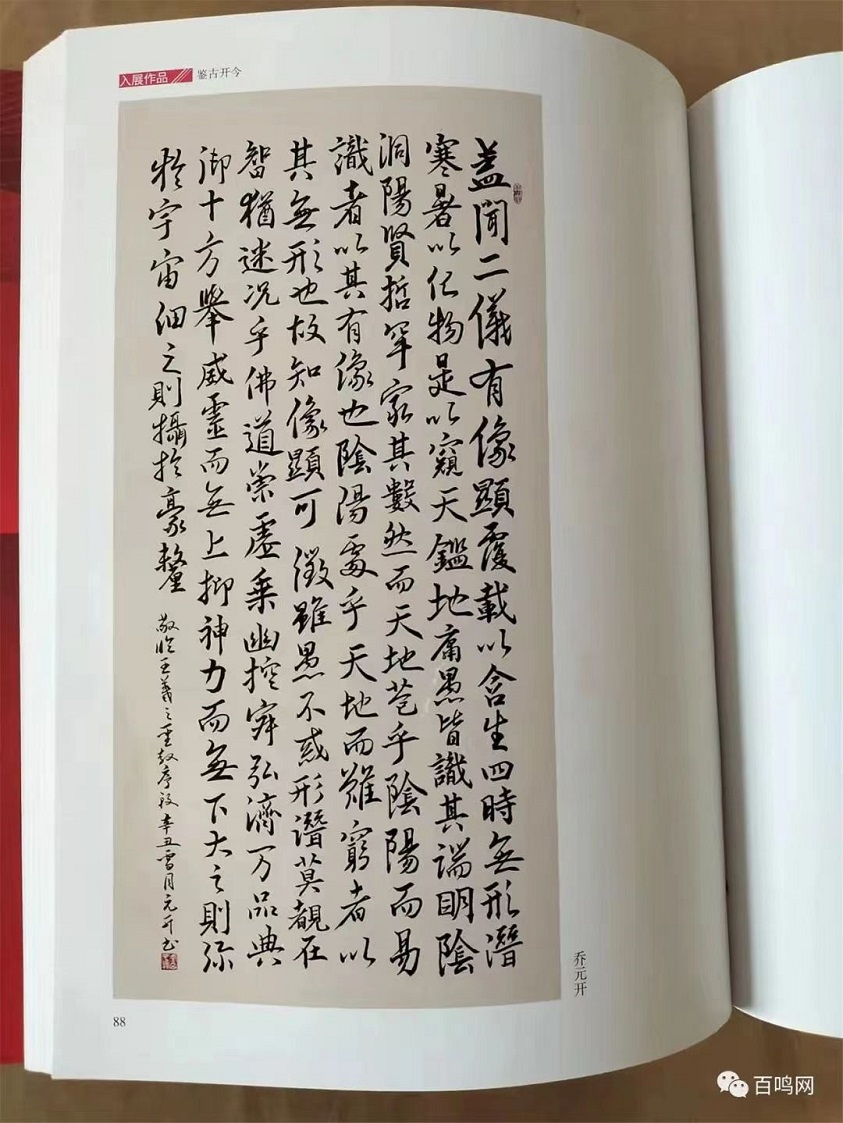 入展作品 鉴古开今
盖聞二儀有像顯覆載以含生四時無形潛
寒暑以化物是以窺天鑑地庸愚皆識其端明陰
洞陽賢哲罕家其數然而天地苞乎陰陽而易
識者以其有像也陰陽處乎天地而難窮者以
其無形也故知像顯可徵雖愚不惑形潛莫覩在
智猶迷況乎佛道崇虛乘幽控寂弘濟万品典
御十方舉威靈而無上抑神力而無下大之則弥
於宇宙細之則攝於豪釐
敬临王羲之圣教序段辛丑雪月元开书
乔元开
88
百鸣网